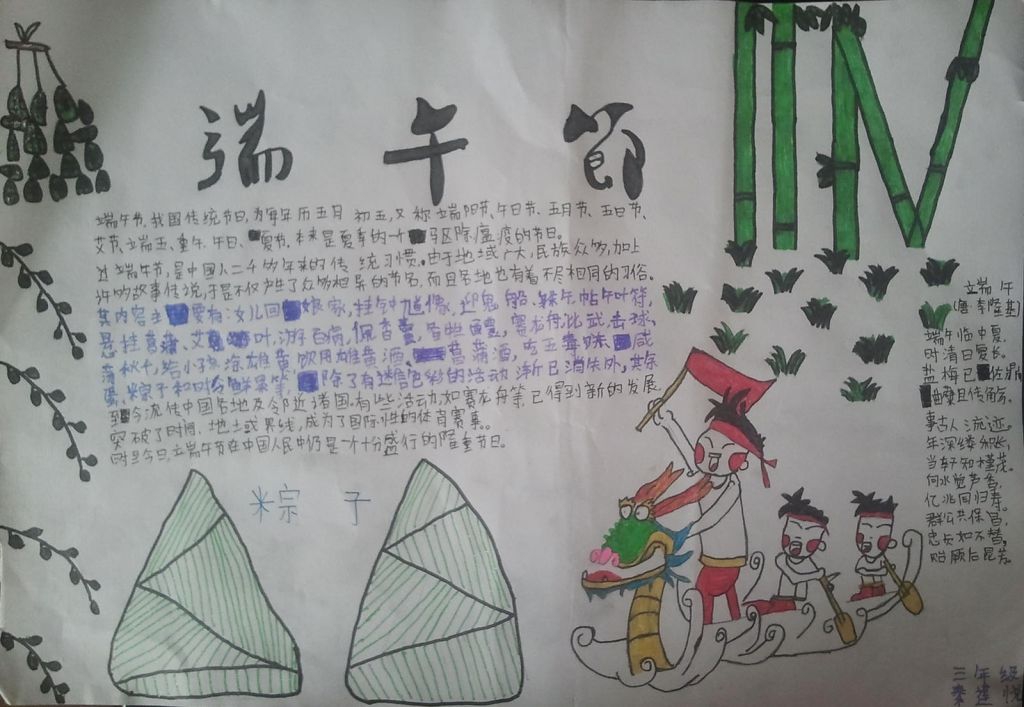 端 午 节
端午节,我国传统节日,为每年历五月 初五,又称端阳节、午日节、五月节、五日节、
艾节、端五、重午、午日、夏节,本来是夏季的一个驱除瘟疫的节日。
过端午节,是中国人二千多年来的传 统习惯。由于地域广大,民族众多,加上
许多故事传说,于是不仅产生了众多相异的节名,而且各地也有着不尽相同的习俗。
其内容主要有:女儿回娘家,挂钟馗像,迎鬼船、躲午,帖午叶符,
悬挂菖蒲、艾叶,游百病,佩香囊,备牲醴,赛龙舟,比武,击球,
荡秋千,给小孩涂雄黄,饮用雄黄酒、菖蒲酒,吃五毒饼、咸
蛋、粽子和时令鲜果等,除了有迷信色彩的活动渐已消失外,其余
至今流传中国各地及邻近诸国。有些活动,如赛龙舟等,已得到新的发展,
突破了时间、地域界线,成为了国际性的体育赛事。
时至今日,端午节在中国人民中仍是一个十分盛行的隆重节日。
粽 子
端 午
(唐·李隆基)
端午临中夏,
时清日复长。
盐梅已佐鼎,
且传觞。
事古人流迹,
年深缕积长。
当轩知槿茂,
向水觉芦香。
亿兆同归寿,
群公共保昌。
忠贞如不替,
贻厥后昆芳。
三 年 级